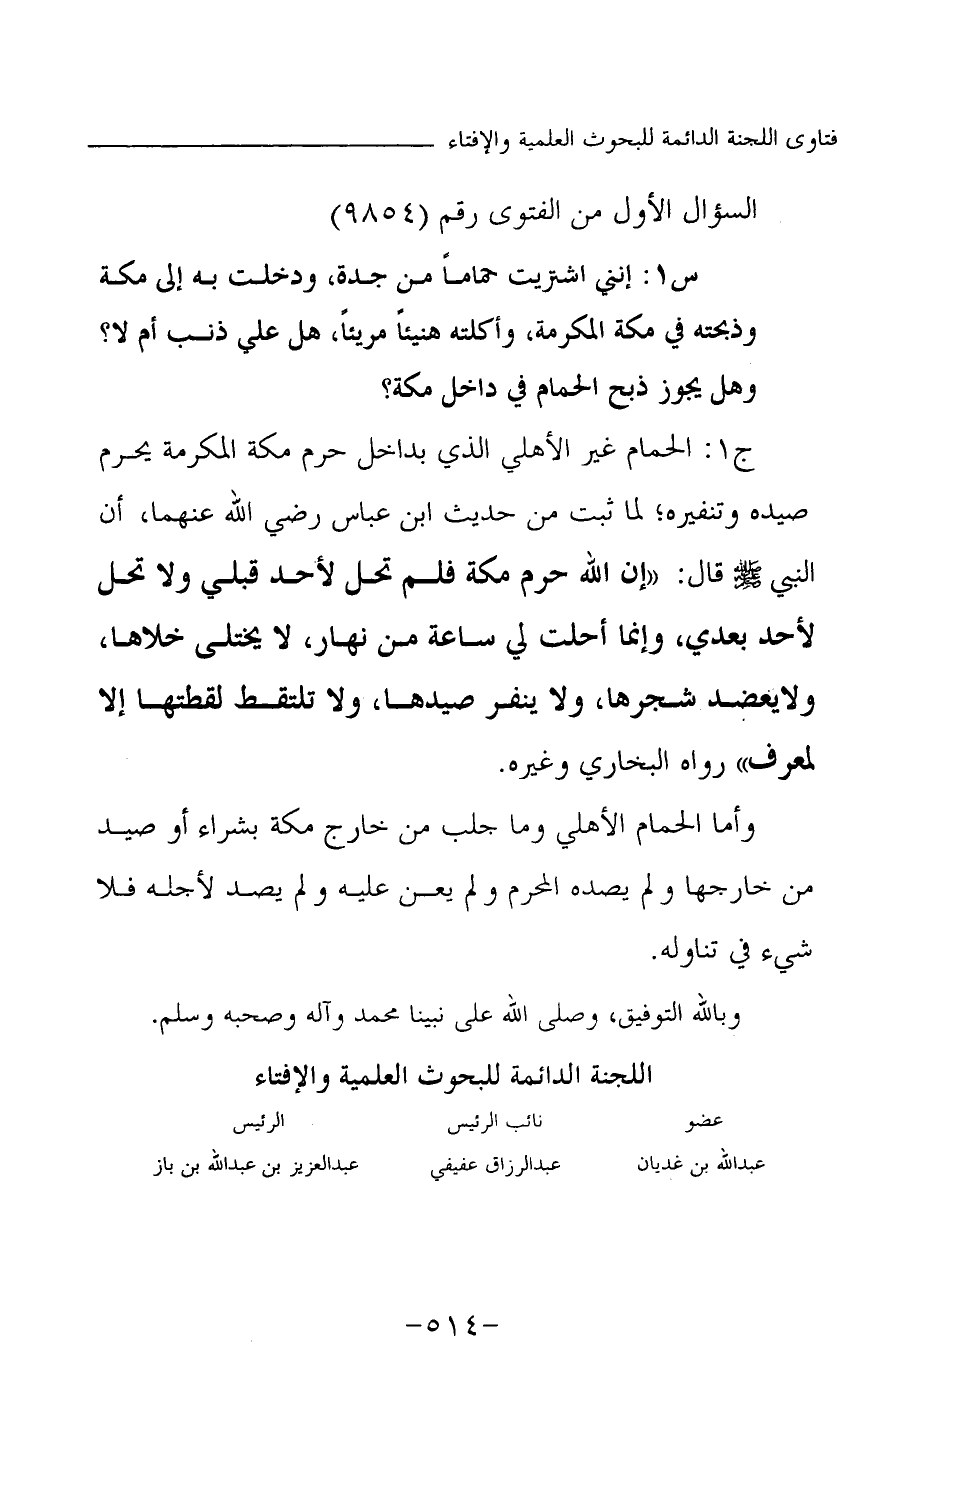 فتاوى اللجنة الدائمة للبحوث العلمية والإفتاء
السؤال الأول من الفتوى رقم (٩٨٥٤)
س١: إنني اشتريت حماماً من جدة، ودخلت به إلى مكة
وذبحته في مكة المكرمة، وأكلته هنيئاً مريئاً، هل علي ذنب أم لا؟
وهل يجوز ذبح الحمام في داخل مكة؟
ج١: الحمام غير الأهلي الذي بداخل حرم مكة المكرمة يحرم
صيده وتنفيره؛ لما ثبت من حديث ابن عباس رضي الله عنهما، أن
النبي ﷺ قال: «إن الله حرم مكة فلم تحل لأحد قبلي ولا تحل
لأحد بعدي، وإنما أحلت لي ساعة من نهار، لا يختلى خلاها،
ولايعضد شجرها، ولا ينفر صيدها، ولا تلتقط لقطتها إلا
لمعرف» رواه البخاري وغيره.
وأما الحمام الأهلي وما جلب من خارج مكة بشراء أو صيد
من خارجها ولم يصده المحرم ولم يعن عليه ولم يصد لأجله فلا
شيء في تناوله.
وبالله التوفيق، وصلى الله على نبينا محمد وآله وصحبه وسلم.
اللجنة الدائمة للبحوث العلمية والإفتاء
عضو نائب الرئيس الرئيس
عبدالله بن غديان عبدالرزاق عفيفي عبدالعزيز بن عبدالله بن باز
-٥١٤-